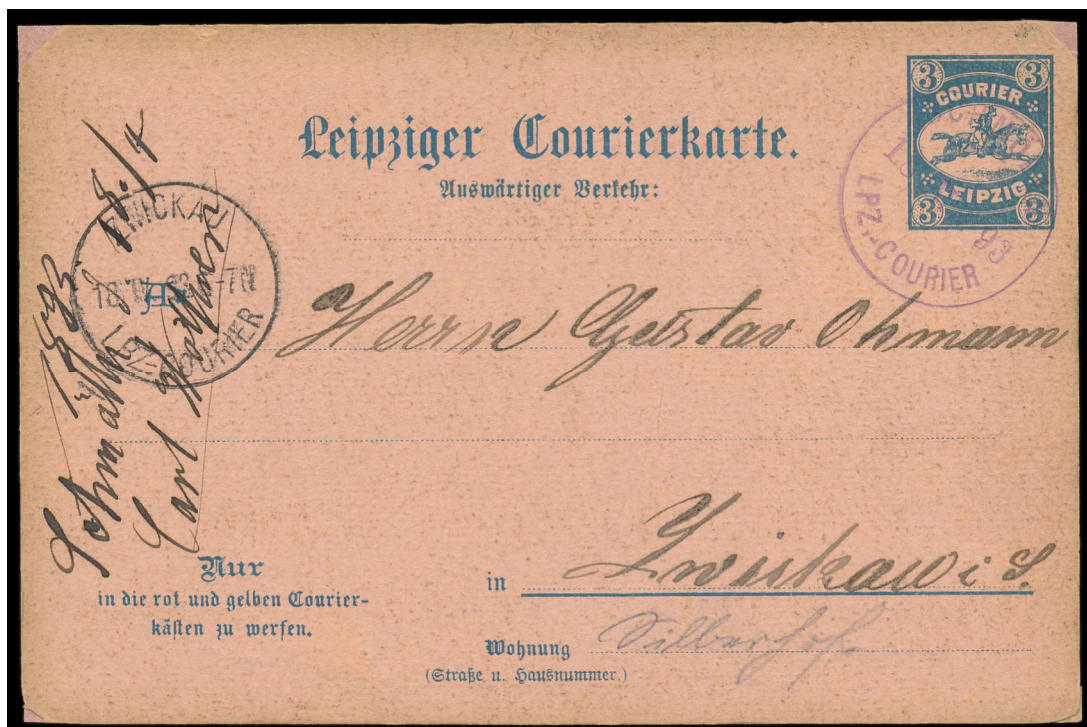 3 3
COURIER
LEIPZIG
3 3
Leipziger Courierkarte.
Auswärtiger Verkehr:
LPZ.-COURIER 93
ZWICKAU
18 IV 93 -7N
LPZ. COURIER
An
Herrn Gustav Ohmann
in Zwickau i S.
Wohnung Silberhof.
(Straße u. Hausnummer.)
Nur
in die rot und gelben Courier-
kästen zu werfen.
1893
18./4
Carl